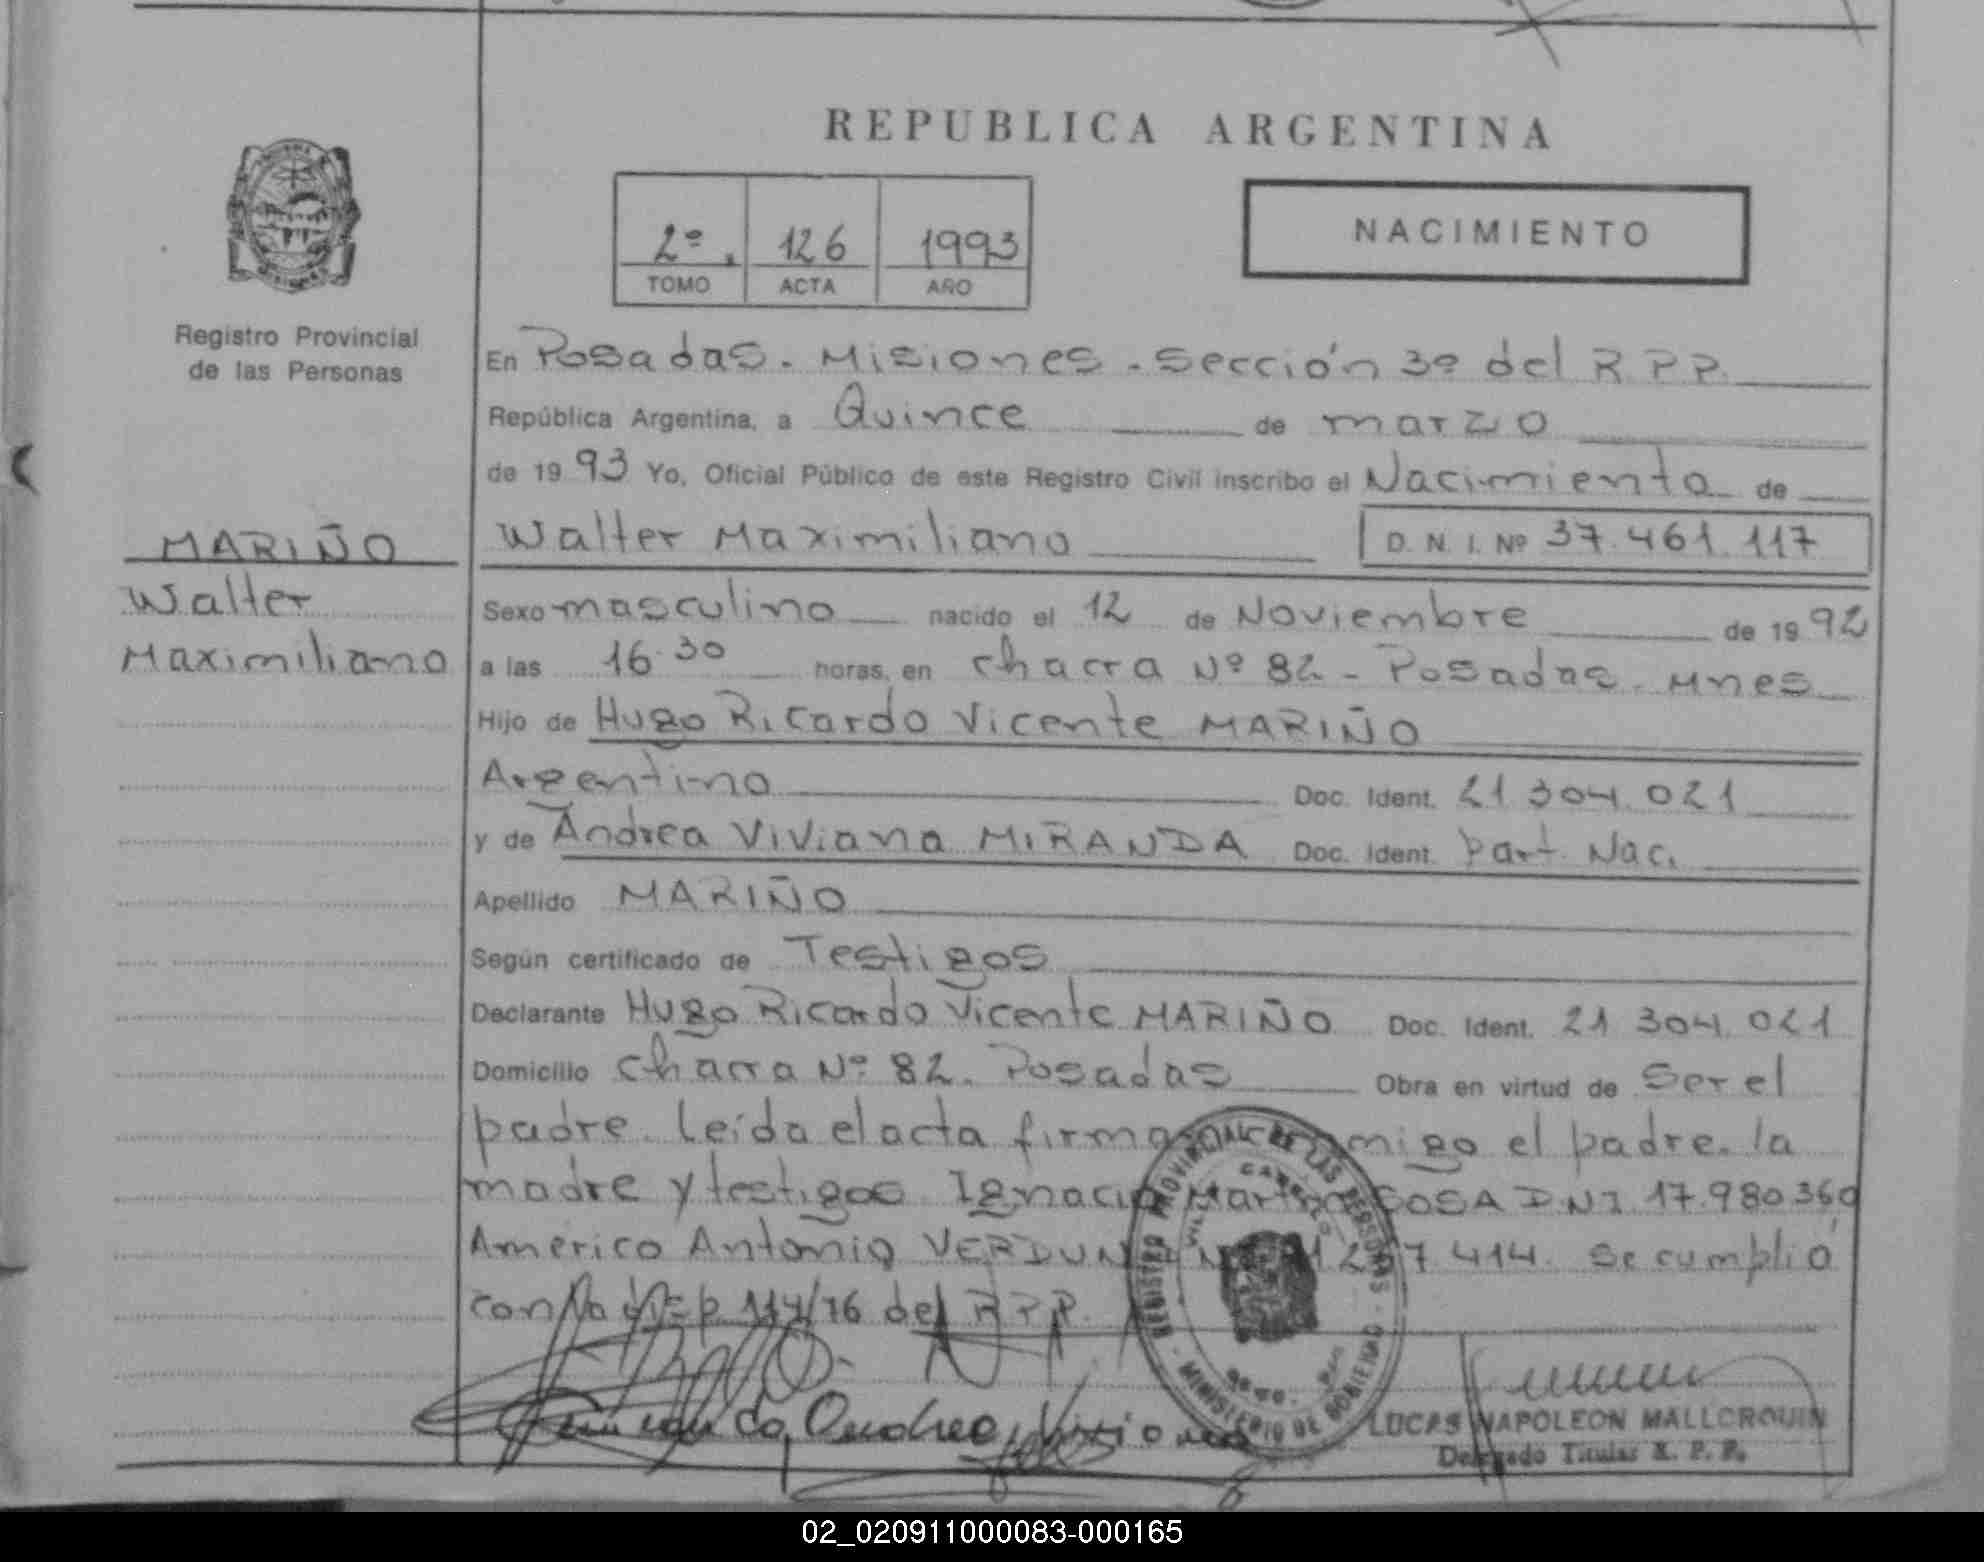 REPUBLICA ARGENTINA
2º. 126 1993
TOMO ACTA AÑO
NACIMIENTO
Registro Provincial
de las Personas
MARIÑO
Walter
Maximiliano
En Posadas. Misiones. Sección 3º del R.P.P.
República Argentina, a Quince de marzo
de 1993 Yo, Oficial Público de este Registro Civil inscribo el Nacimiento de
Walter Maximiliano D. N. I. Nº 37.461.117
Sexo masculino nacido el 12 de Noviembre de 1992
a las 16.30 horas, en chacra Nº 82 - Posadas. Mnes
Hijo de Hugo Ricardo Vicente MARIÑO
Argentino Doc. Ident. 21.304.021
y de Andrea Viviana MIRANDA Doc. Ident. Part. Nac.
Apellido MARIÑO
Según certificado de Testigos
Declarante Hugo Ricardo Vicente MARIÑO Doc. Ident. 21.304.021
Domicilio chacra Nº 82. Posadas Obra en virtud de Ser el
padre. Leída el acta firma el padre. la
madre y testigos Ignacio SOSA D.N.I. 17.980.360
Américo Antonio VERDUN 414. Se cumplió
con 114/76 del R.P.P.
REGISTRO PROVINCIAL DE LAS PERSONAS
MINISTERIO DE GOBIERNO
LUCAS NAPOLEON MALLORQUIN
Delegado Titular R. P. P.
02_020911000083-000165